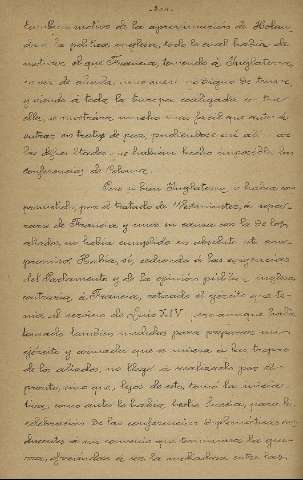 tambien motivo de la aproximación de Holan-
da á la política inglesa, todo lo cual había de
motivar el que Francia, teniendo á Inglaterra
en vez de aliada, como
y viendo á toda la Europa coaligada en contra de
ella, se mostrara mucho mas facil que antes á
entrar en tratos de paz, pudiendose así
las dificultades que habían hecho imposible las
conferencias de Colonia.
Pero si bien Inglaterra se había com-
prometido, por el tratado de Westminster, á sepa-
rarse de Francia, y unir su causa con la de los
aliados, no había cumplido en absoluto este com-
promiso. Había, sí, cediendo á las exigencias
del Parlamento y de la opinión pública inglesa
contraria á Francia, retirado el ejército que te-
nía al servicio de Luis XIV, pero aunque había
tomado tambien medidas para preparar un
ejército y armada que se uniera á las tropas
de los aliados, no llegó á realizarlo por el
pronto, sino que, lejos de esto, tomó la inicia-
tiva, como antes lo había hecho Suecia, para la
celebracion de las conferencias diplomáticas con-
ducentes á un convenio que terminara la gue-
rra, ofreciéndose á ser la mediadora entre las